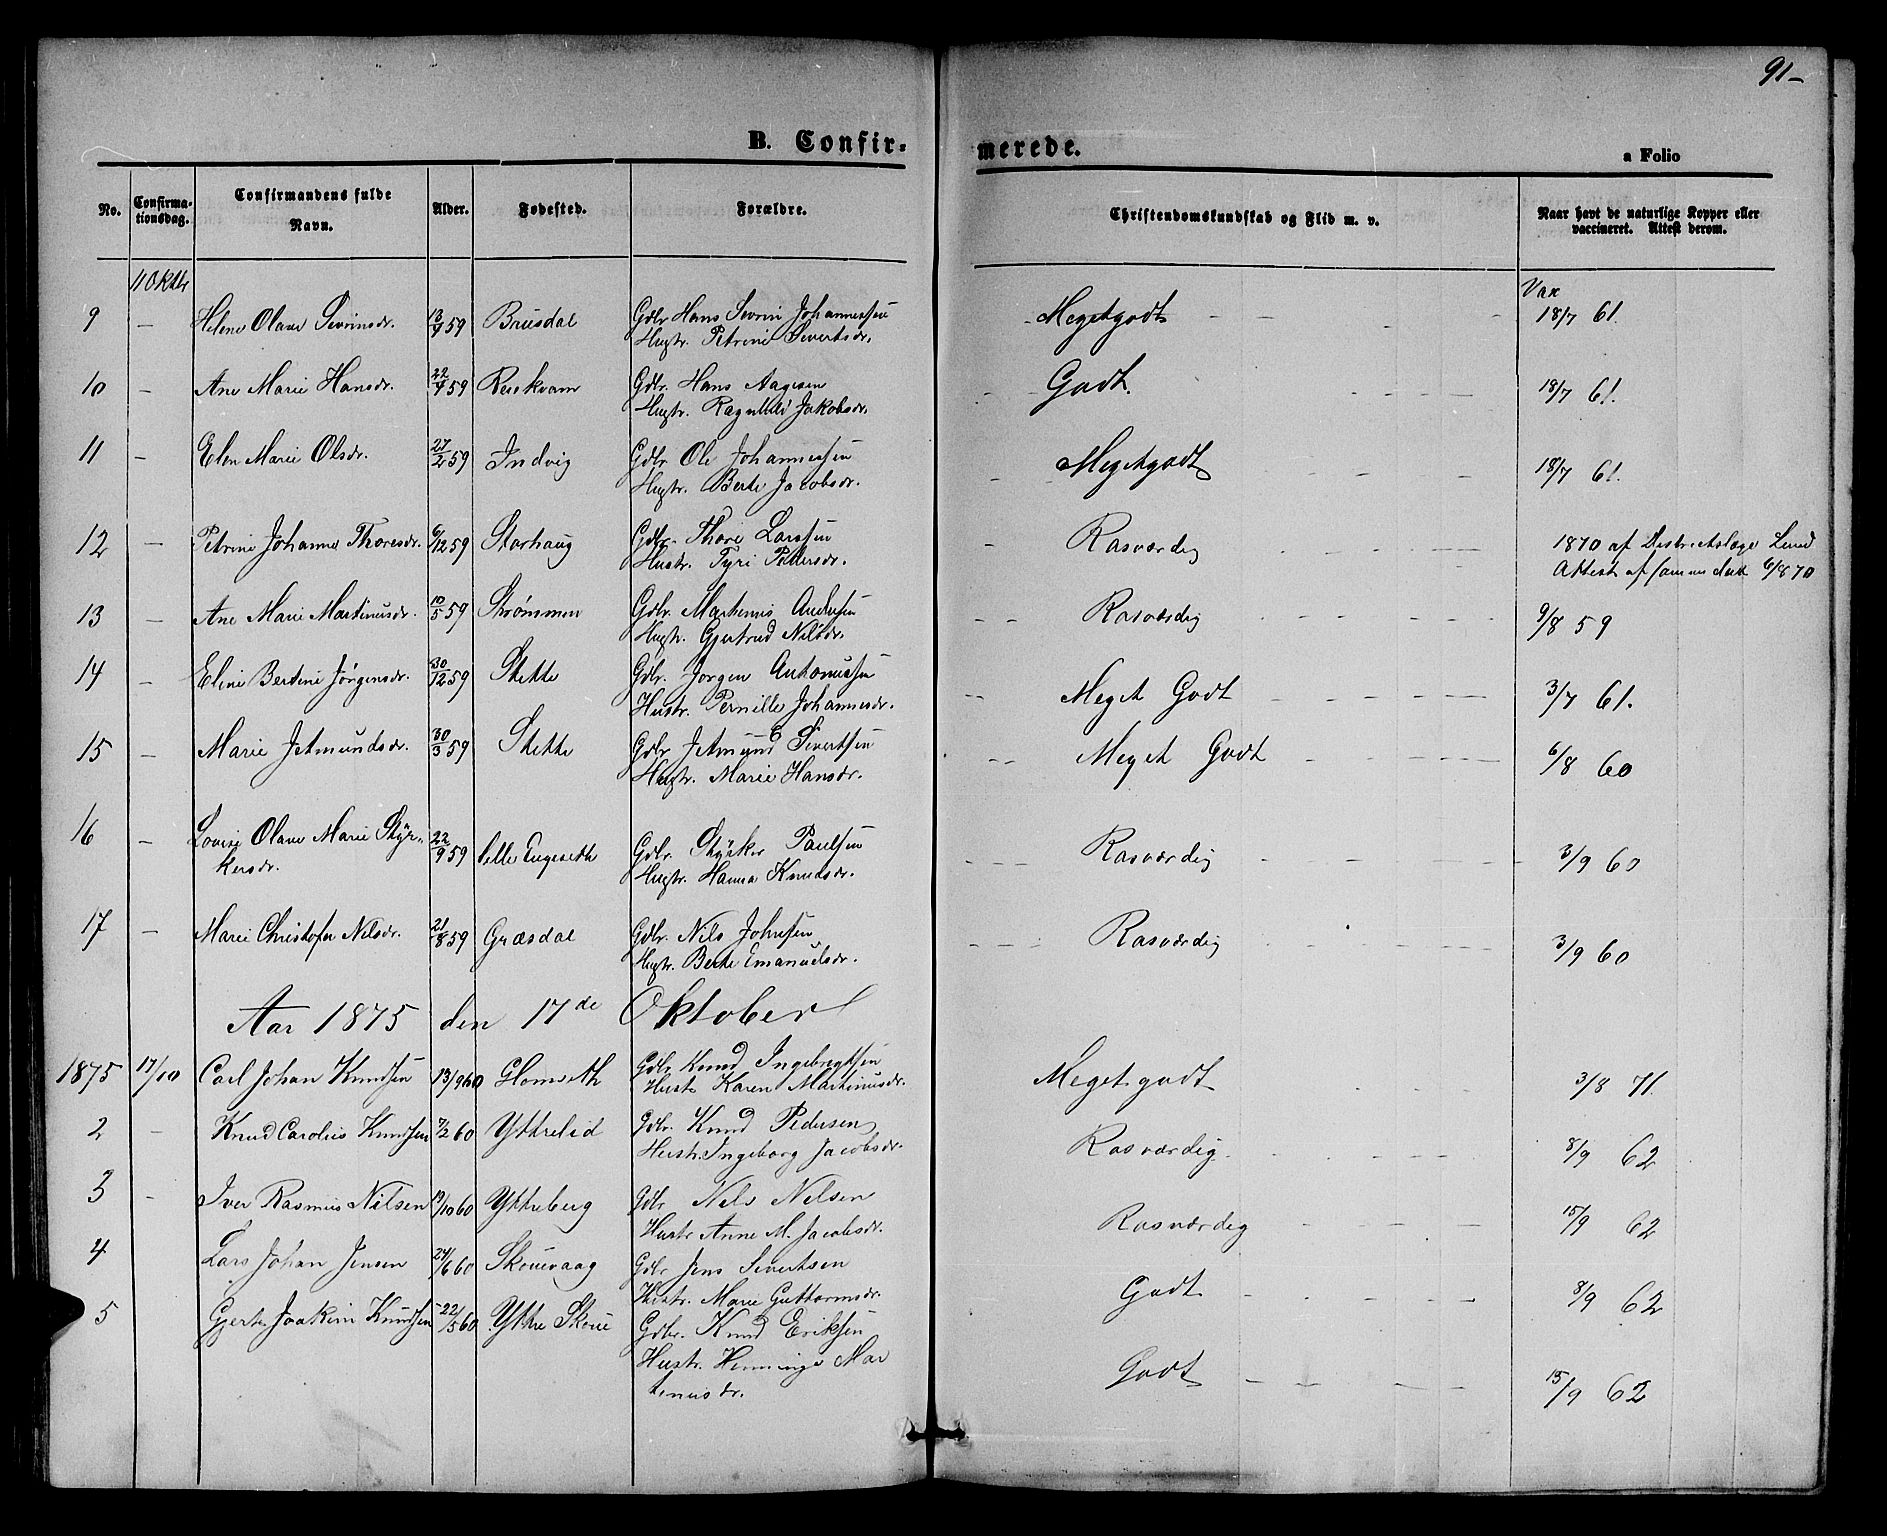 91-
B. Confirmerede.
a Folio
No. Confirmationsdag. Confirmandens fulde Navn. Alder. Fødested. Forældre. Christendomskundskab og Flid m. v. Naar havt de naturlige Kopper eller vaccineret. Attest derom.
11 Oktbr Vax
9 — Helene Olave Sevrinsdr. 13/9 59 Brusdal Gdbr Hans Sevrin Johannessen Meget godt 18/7 61.
Hustr. Petrine Sivertsdr.
10 — Ane Marie Hansdr. 22/4 59 Reiskvam Gdbr. Hans Aagesen Godt. 18/7 61.
Hustr. Ragnhild Jakobsdr.
11 — Elen Marie Olsdr. 27/2 59 Indvig Gdbr. Ole Johannessen Meget godt 18/7 61.
Hustr. Berte Jacobsdr.
12 — Petrine Johanne Thoresdr. 6/12 59 Storhaug Gdbr. Thore Larssen Rosværdig 1870 af Districtslæge Lund
Hustr. Tyri Pettersdr. Attest af samme dat 6/8 70
13 — Ane Marie Martinusdr. 10/5 59 Strømmen Gdbr. Martinus Andersen Rosværdig 9/8 59
Hustr. Gjertrud Nilsdr
14 — Eline Bertine Jørgensdr. 30/12 59 Stette Gdbr. Jørgen Antonussen Meget Godt 3/7 61.
Hustr. Pernille Johannesdr.
15 — Marie Jetmundsdr. 30/3 59 Stette Gdbr Jetmund Sivertsen Meget Godt 6/8 60
Hustr. Marie Hansdr.
16 — Lovise Olave Marie Styr- 22/9 59 lille Engeseth Gdbr. Styrker Paulsen Rosværdig 3/9 60
kersdr. Hustr. Hanna Knudsdr.
17 — Marie Christofa Nilsdr. 21/8 59 Græsdal Gdbr. Nils Johnsen Rosværdig 3/9 60
Hustr. Berte Emanuelsdr.
Aar 1875 den 17de Oktober
1875 17/10 Carl Johan Knudsen 13/9 60 Glomseth Gdbr Knud Ingebrigtsen Meget godt 3/8 71.
Hustr Karen Martinusdr.
2 — Knud Carolius Knudsen 7/2 60 Yttrelid Gdbr. Knud Pedersen Rosværdig 8/9 62
Hustr. Ingeborg Jacobsdr.
3 — Iver Rasmus Nilsen 19/10 60 Yttreberg Gdbr Nels Nelsen Rosværdig 15/9 62
Hustr Anne M. Jacobsdr.
4 Lars Johan Jensen 24/6 60 Skouevaag Gdbr Jens Sivertsen Godt 8/9 62
Hustr. Marie Guttormsdr.
5 Gjert Joakim Knudsen 22/5 60 Yttre Skoue Gdbr. Knud Eriksen Godt 15/9 62
Hustr. Henninge Mar
tinusdr.